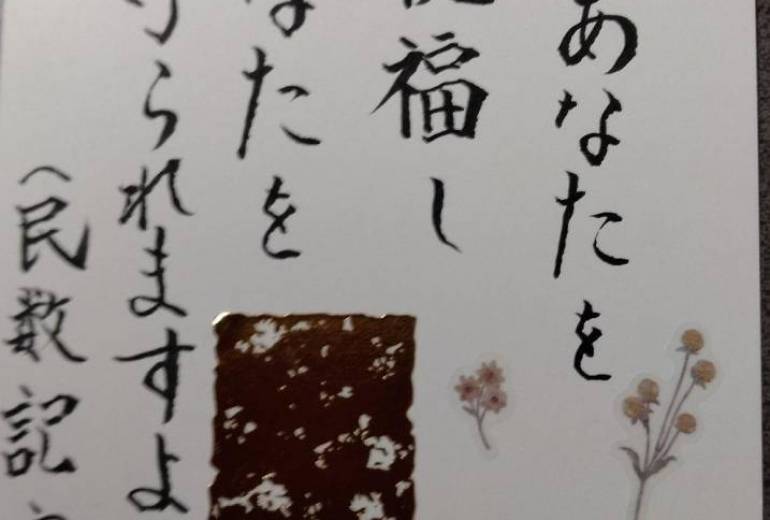 あなたを
福し
なたを
られますよ
（民数記